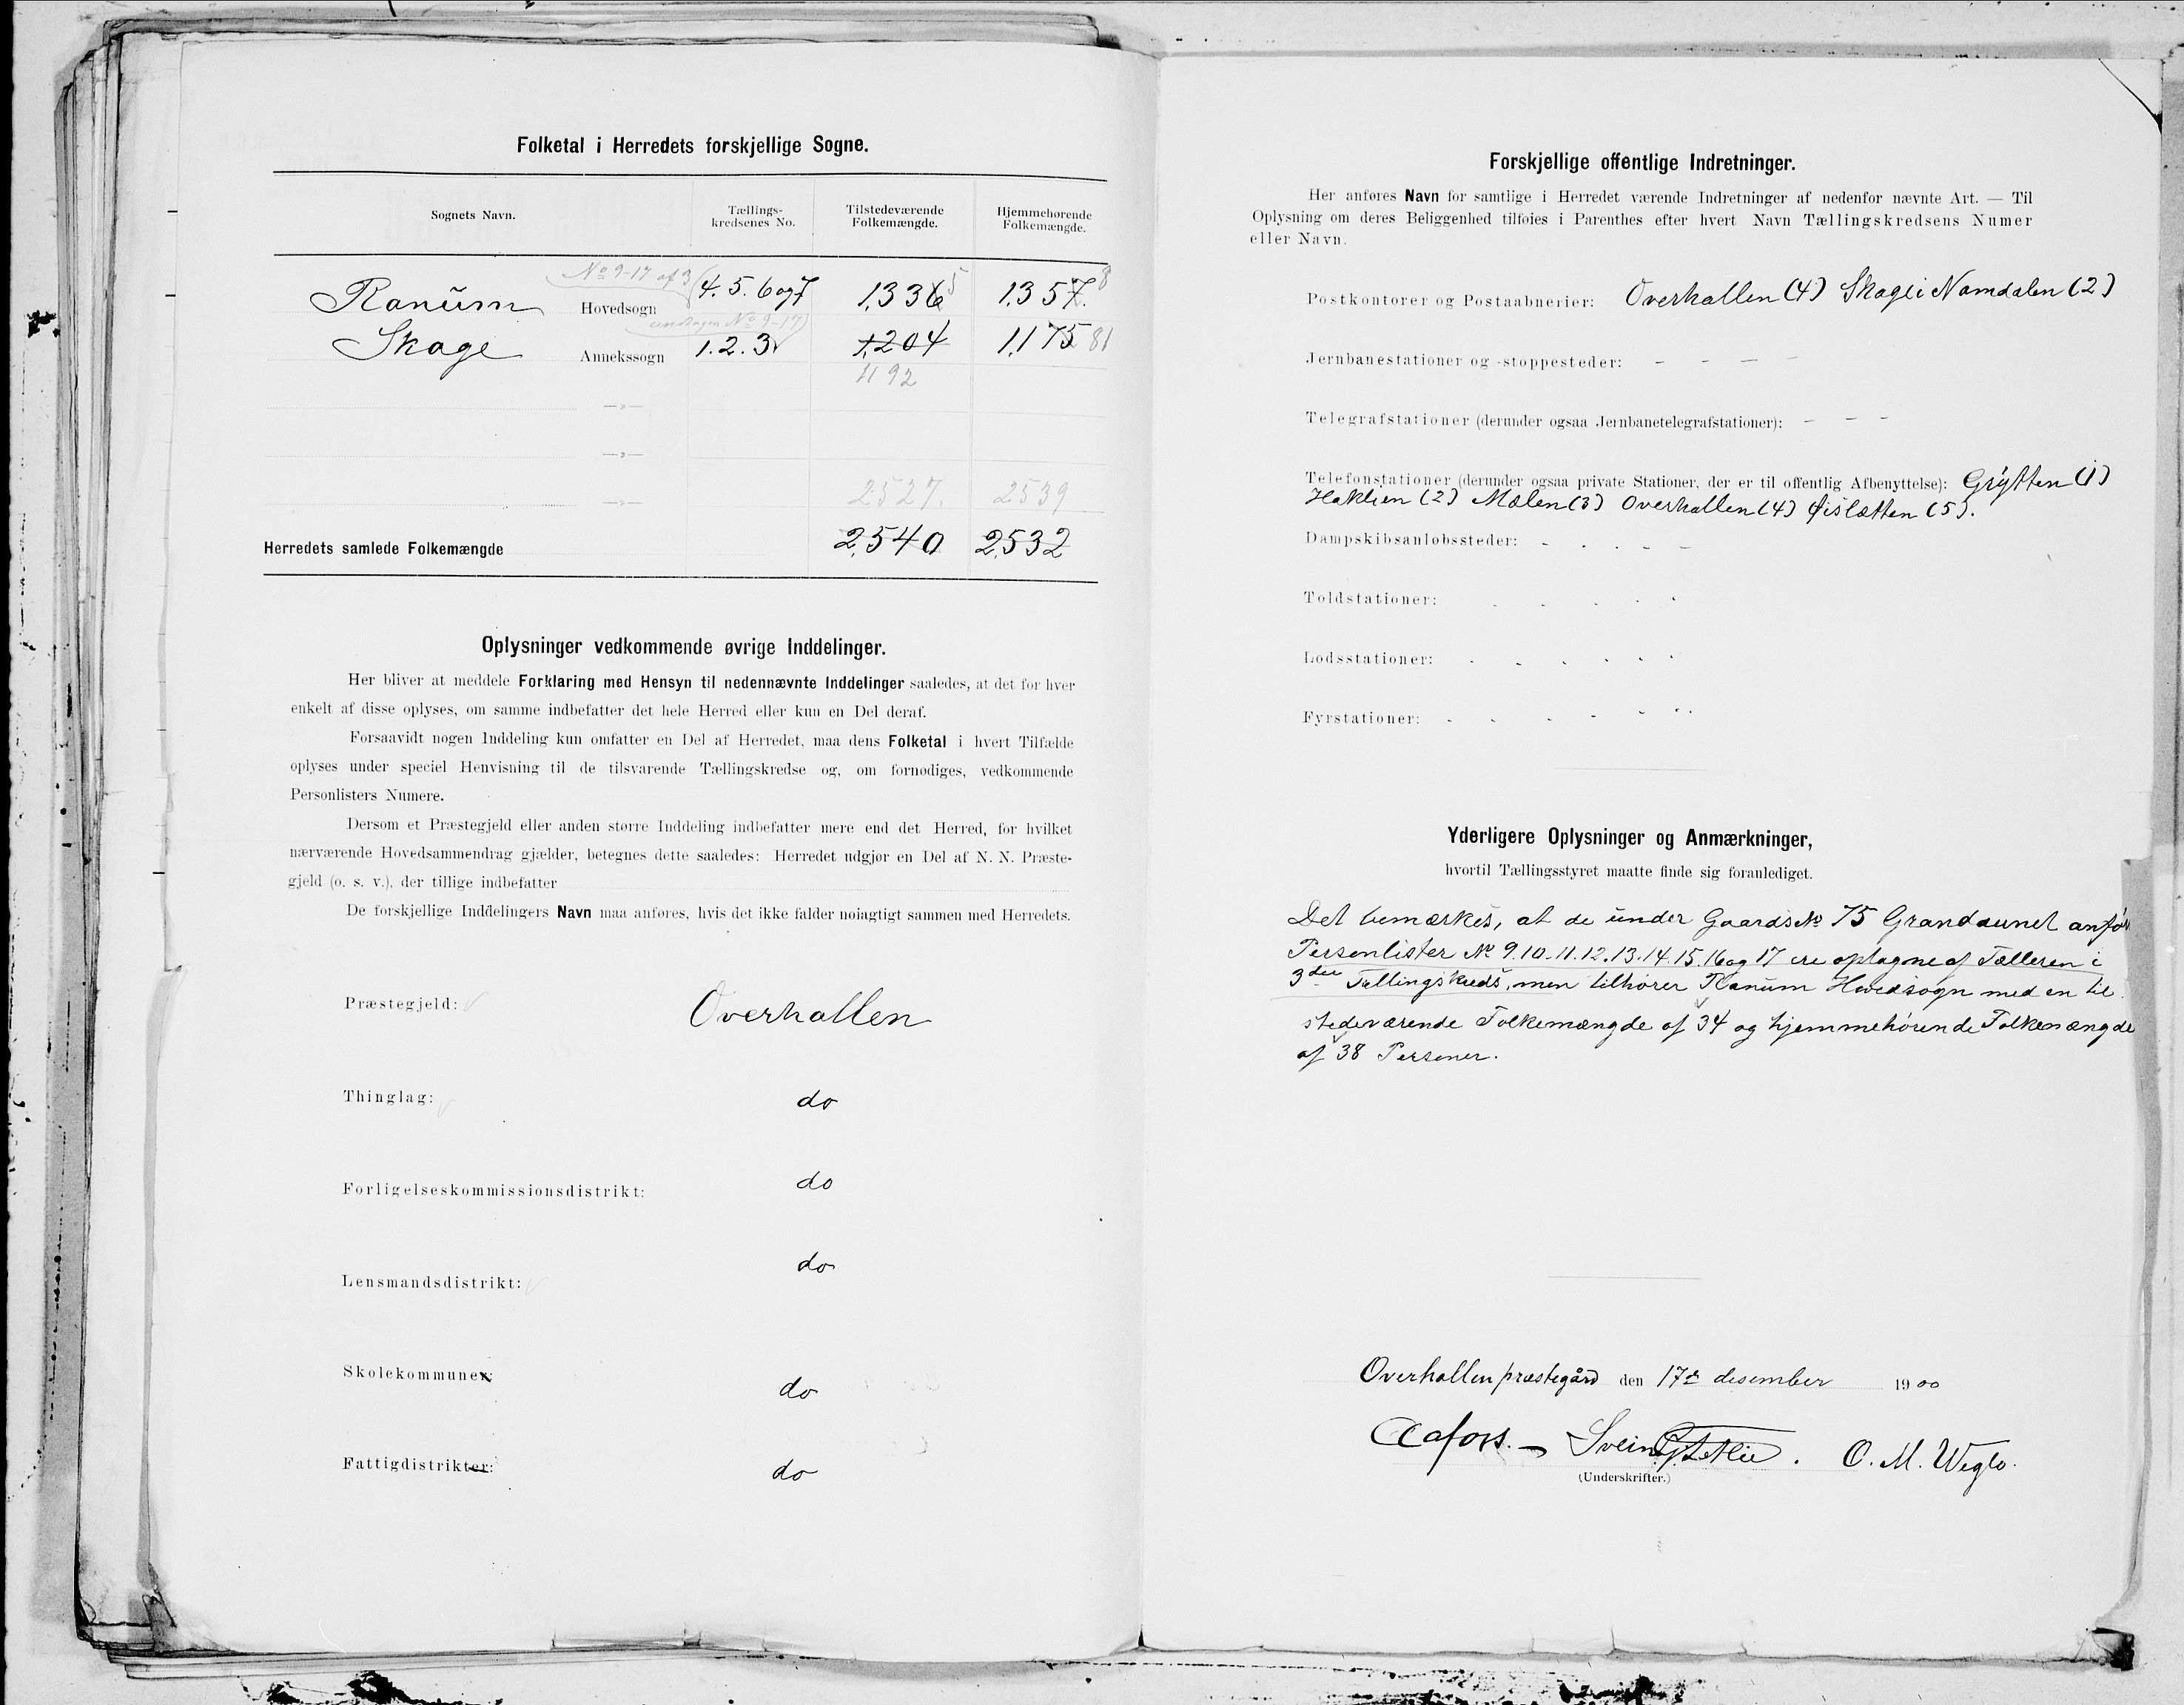 Folketal i Herredets forskjellige Sogne.
Sognets Navn.
Tællings-
kredsenes No.
Tilstedeværende
Folkemængde.
Hjemmehørende
Folkemængde.
No 9-17 af 3
Ranum Hovedsogn 4. 5. 6 og 7 1,336 5 1,357. 8
undtagen No 9-17
Skage Annekssogn 1. 2. 3 1,204 1,175 81
1192
—»—
—»—
2527. 2539
—»—
Herredets samlede Folkemængde 2,540 2,532
Oplysninger vedkommende øvrige Inddelinger.
Her bliver at meddele Forklaring med Hensyn til nedennævnte Inddelinger saaledes, at det for hver
enkelt af disse oplyses, om samme indbefatter det hele Herred eller kun en Del deraf.
Forsaavidt nogen Inddeling kun omfatter en Del af Herredet, maa dens Folketal i hvert Tilfælde
oplyses under speciel Henvisning til de tilsvarende Tællingskredse og, om fornødiges, vedkommende
Personlisters Numere.
Dersom et Præstegjeld eller anden større Inddeling indbefatter mere end det Herred, for hvilket
nærværende Hovedsammendrag gjælder, betegnes dette saaledes: Herredet udgjør en Del af N. N. Præste-
gjeld (o. s. v.), der tillige indbefatter
De forskjellige Inddelingers Navn maa anføres, hvis det ikke falder nøiagtigt sammen med Herredets.
Præstegjeld: Overhallen
Thinglag: do
Forligelseskommissionsdistrikt: do
Lensmandsdistrikt: do
Skolekommuner: do
Fattigdistrikter: do
Forskjellige offentlige Indretninger.
Her anføres Navn for samtlige i Herredet værende Indretninger af nedenfor nævnte Art. — Til
Oplysning om deres Beliggenhed tilføies i Parenthes efter hvert Navn Tællingskredsens Numer
eller Navn.
Postkontorer og Postaabnerier: Overhallen (4) Skage i Namdalen (2)
Jernbanestationer og -stoppesteder: - - - -
Telegrafstationer (derunder ogsaa Jernbanetelegrafstationer): - - -
Telefonstationer (derunder ogsaa private Stationer, der er til offentlig Afbenyttelse): Grytten (1)
Haklien (2) Mælen (3) Overhallen (4) Øisletten (5).
Dampskibsanløbssteder: - - - - -
Toldstationer: - - - - -
Lodsstationer: - - - - -
Fyrstationer: - - - - -
Yderligere Oplysninger og Anmærkninger,
hvortil Tællingsstyret maatte finde sig foranlediget.
Det bemærkes, at de under Gaards No 75 Grandaunet
Personlister No 9. 10. 11. 12. 13. 14. 15. 16 og 17 ere optagne af Tælleren i
3die Tællingskreds, men tilhører Ranum Hovedsogn med en til
stedeværende Folkemængde af 34 og hjemmehørende Folkemængde
af 38 Personer.
Overhallen præstegård den 17de desember 1900
Aafoss. - Svein O. M. Weglo.
(Underskrifter.)